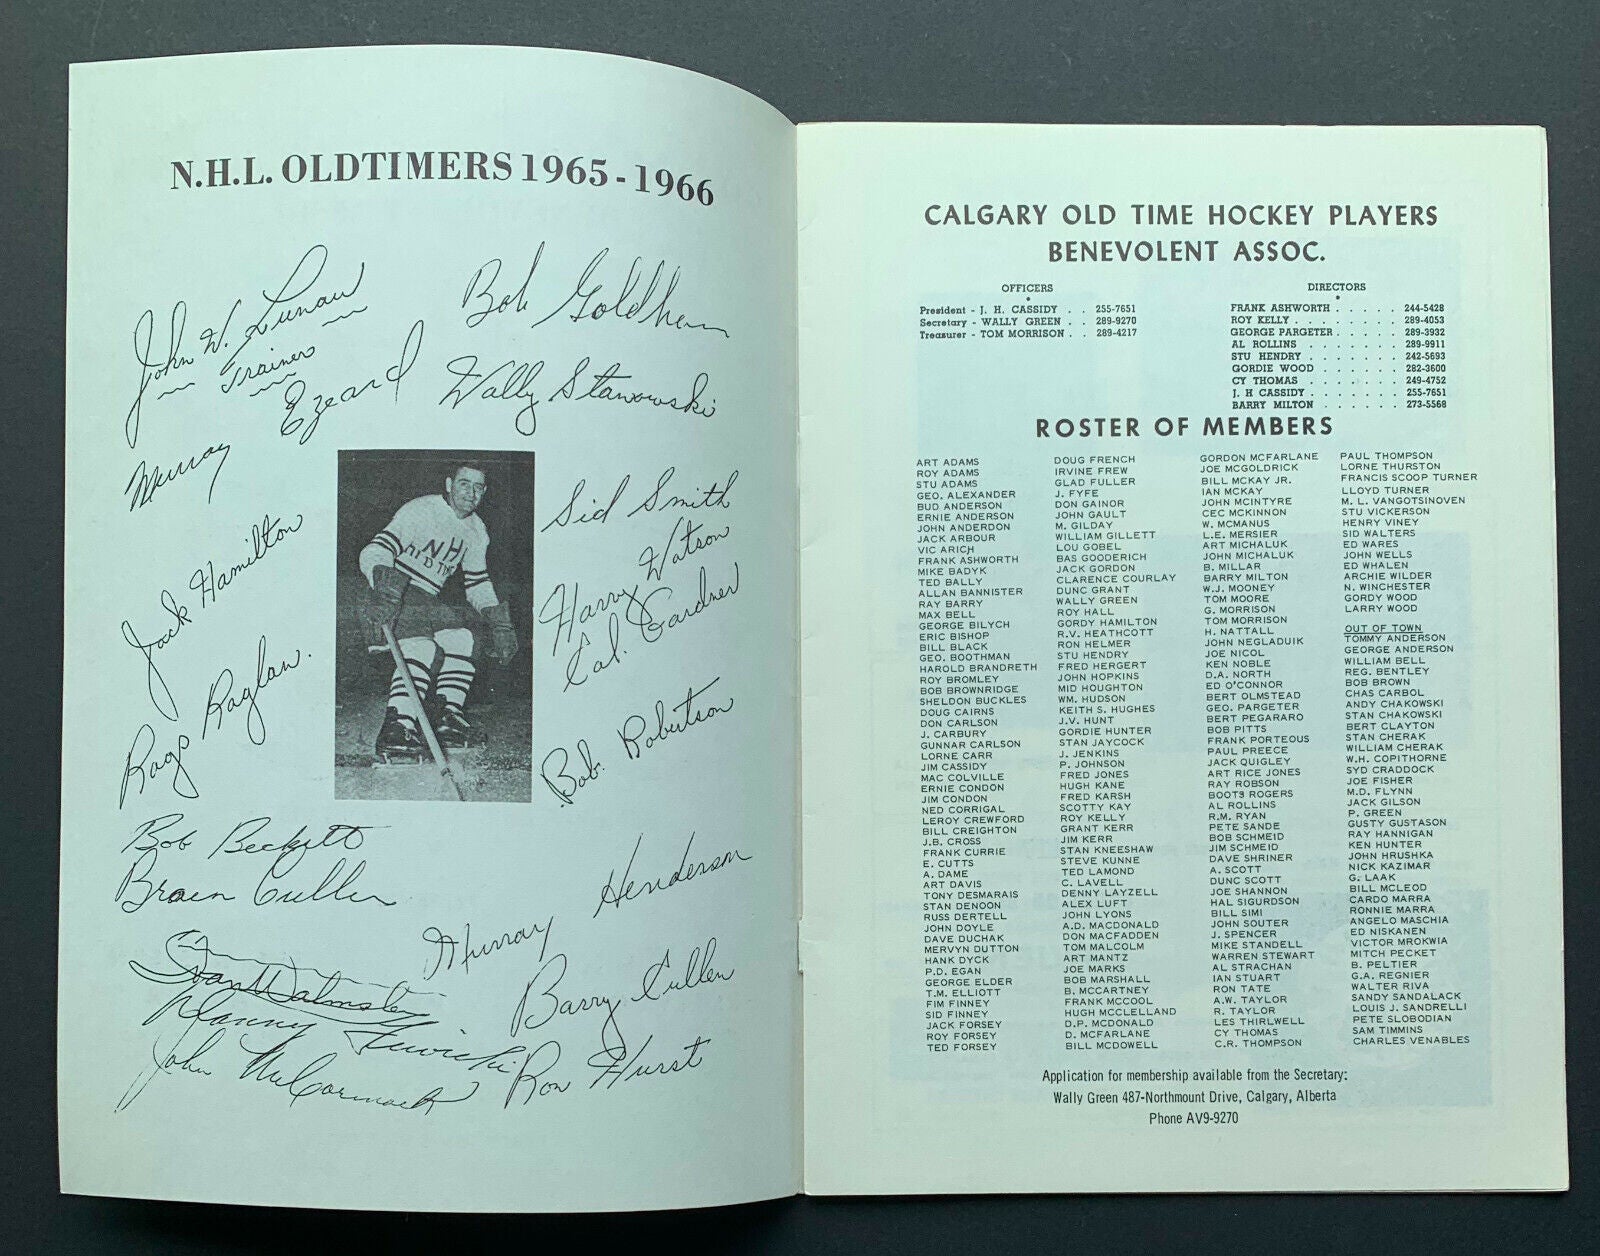 N.H.L. OLDTIMERS 1965 - 1966
John W. Lunau
Trainer
Bob Goldham
Murray Ezeard
Wally Stanowski
Jack Hamilton
Sid Smith
Harry Watson
Cal. Gardner
Rags Raglan.
Bob. Robertson
NHL
Bob Beckett
Brain Cullen
Murray Henderson
Ivan Walmsley
Barry Cullen
Danny Lewicki
John McCormack
Ron Hurst
CALGARY OLD TIME HOCKEY PLAYERS
BENEVOLENT ASSOC.
OFFICERS
President - J. H. CASSIDY . . 255-7651
Secretary - WALLY GREEN . . 289-9270
Treasurer - TOM MORRISON . . 289-4217
DIRECTORS
FRANK ASHWORTH . . . . . 244-5428
ROY KELLY . . . . . . . . 289-4053
GEORGE PARGETER . . . . . 289-3932
AL ROLLINS . . . . . . . 289-9911
STU HENDRY . . . . . . . 242-5693
GORDIE WOOD . . . . . . 282-3600
CY THOMAS . . . . . . . 249-4752
J. H CASSIDY . . . . . . 255-7651
BARRY MILTON . . . . . . 273-5568
ROSTER OF MEMBERS
ART ADAMS
ROY ADAMS
STU ADAMS
GEO. ALEXANDER
BUD ANDERSON
ERNIE ANDERSON
JOHN ANDERDON
JACK ARBOUR
VIC ARICH
FRANK ASHWORTH
MIKE BADYK
TED BALLY
ALLAN BANNISTER
RAY BARRY
MAX BELL
GEORGE BILYCH
ERIC BISHOP
BILL BLACK
GEO. BOOTHMAN
HAROLD BRANDRETH
ROY BROMLEY
BOB BROWNRIDGE
SHELDON BUCKLES
DOUG CAIRNS
DON CARLSON
J. CARBURY
GUNNAR CARLSON
LORNE CARR
JIM CASSIDY
MAC COLVILLE
ERNIE CONDON
JIM CONDON
NED CORRIGAL
LEROY CREWFORD
BILL CREIGHTON
J.B. CROSS
FRANK CURRIE
E. CUTTS
A. DAME
ART DAVIS
TONY DESMARAIS
STAN DENOON
RUSS DERTELL
JOHN DOYLE
DAVE DUCHAK
MERVYN DUTTON
HANK DYCK
P.D. EGAN
GEORGE ELDER
T.M. ELLIOTT
FIM FINNEY
SID FINNEY
JACK FORSEY
ROY FORSEY
TED FORSEY
DOUG FRENCH
IRVINE FREW
GLAD FULLER
J. FYFE
DON GAINOR
JOHN GAULT
M. GILDAY
WILLIAM GILLETT
LOU GOBEL
BAS GOODERICH
JACK GORDON
CLARENCE COURLAY
DUNC GRANT
WALLY GREEN
ROY HALL
GORDY HAMILTON
R.V. HEATHCOTT
RON HELMER
STU HENDRY
FRED HERGERT
JOHN HOPKINS
MID HOUGHTON
WM. HUDSON
KEITH S. HUGHES
J.V. HUNT
GORDIE HUNTER
STAN JAYCOCK
J. JENKINS
P. JOHNSON
FRED JONES
HUGH KANE
FRED KARSH
SCOTTY KAY
ROY KELLY
GRANT KERR
JIM KERR
STAN KNEESHAW
STEVE KUNNE
TED LAMOND
C. LAVELL
DENNY LAYZELL
ALEX LUFT
JOHN LYONS
A.D. MACDONALD
DON MACFADDEN
TOM MALCOLM
ART MANTZ
JOE MARKS
BOB MARSHALL
B. MCCARTNEY
FRANK MCCOOL
HUGH MCCLELLAND
D.P. MCDONALD
D. MCFARLANE
BILL MCDOWELL
GORDON MCFARLANE
JOE MCGOLDRICK
BILL MCKAY JR.
IAN MCKAY
JOHN MCINTYRE
CEC MCKINNON
W. MCMANUS
L.E. MERSIER
ART MICHALUK
JOHN MICHALUK
B. MILLAR
BARRY MILTON
W.J. MOONEY
TOM MOORE
G. MORRISON
TOM MORRISON
H. NATTALL
JOHN NEGLADUIK
JOE NICOL
KEN NOBLE
D.A. NORTH
ED O'CONNOR
BERT OLMSTEAD
GEO. PARGETER
BERT PEGARARO
BOB PITTS
FRANK PORTEOUS
PAUL PREECE
JACK QUIGLEY
ART RICE JONES
RAY ROBSON
BOOTS ROGERS
AL ROLLINS
R.M. RYAN
PETE SANDE
BOB SCHMEID
JIM SCHMEID
DAVE SHRINER
A. SCOTT
DUNC SCOTT
JOE SHANNON
HAL SIGURDSON
BILL SIMI
JOHN SOUTER
J. SPENCER
MIKE STANDELL
WARREN STEWART
AL STRACHAN
IAN STUART
RON TATE
A.W. TAYLOR
R. TAYLOR
LES THIRLWELL
CY THOMAS
C.R. THOMPSON
PAUL THOMPSON
LORNE THURSTON
FRANCIS SCOOP TURNER
LLOYD TURNER
M. L. VANGOTSINOVEN
STU VICKERSON
HENRY VINEY
SID WALTERS
ED WARES
JOHN WELLS
ED WHALEN
ARCHIE WILDER
N. WINCHESTER
GORDY WOOD
LARRY WOOD
OUT OF TOWN
TOMMY ANDERSON
GEORGE ANDERSON
WILLIAM BELL
REG. BENTLEY
BOB BROWN
CHAS CARBOL
ANDY CHAKOWSKI
STAN CHAKOWSKI
BERT CLAYTON
STAN CHERAK
WILLIAM CHERAK
W.H. COPITHORNE
SYD CRADDOCK
JOE FISHER
M.D. FLYNN
JACK GILSON
P. GREEN
GUSTY GUSTASON
RAY HANNIGAN
KEN HUNTER
JOHN HRUSHKA
NICK KAZIMAR
G. LAAK
BILL MCLEOD
CARDO MARRA
RONNIE MARRA
ANGELO MASCHIA
ED NISKANEN
VICTOR MROKWIA
MITCH PECKET
B. PELTIER
G.A. REGNIER
WALTER RIVA
SANDY SANDALACK
LOUIS J. SANDRELLI
PETE SLOBODIAN
SAM TIMMINS
CHARLES VENABLES
Application for membership available from the Secretary:
Wally Green 487-Northmount Drive, Calgary, Alberta
Phone AV9-9270